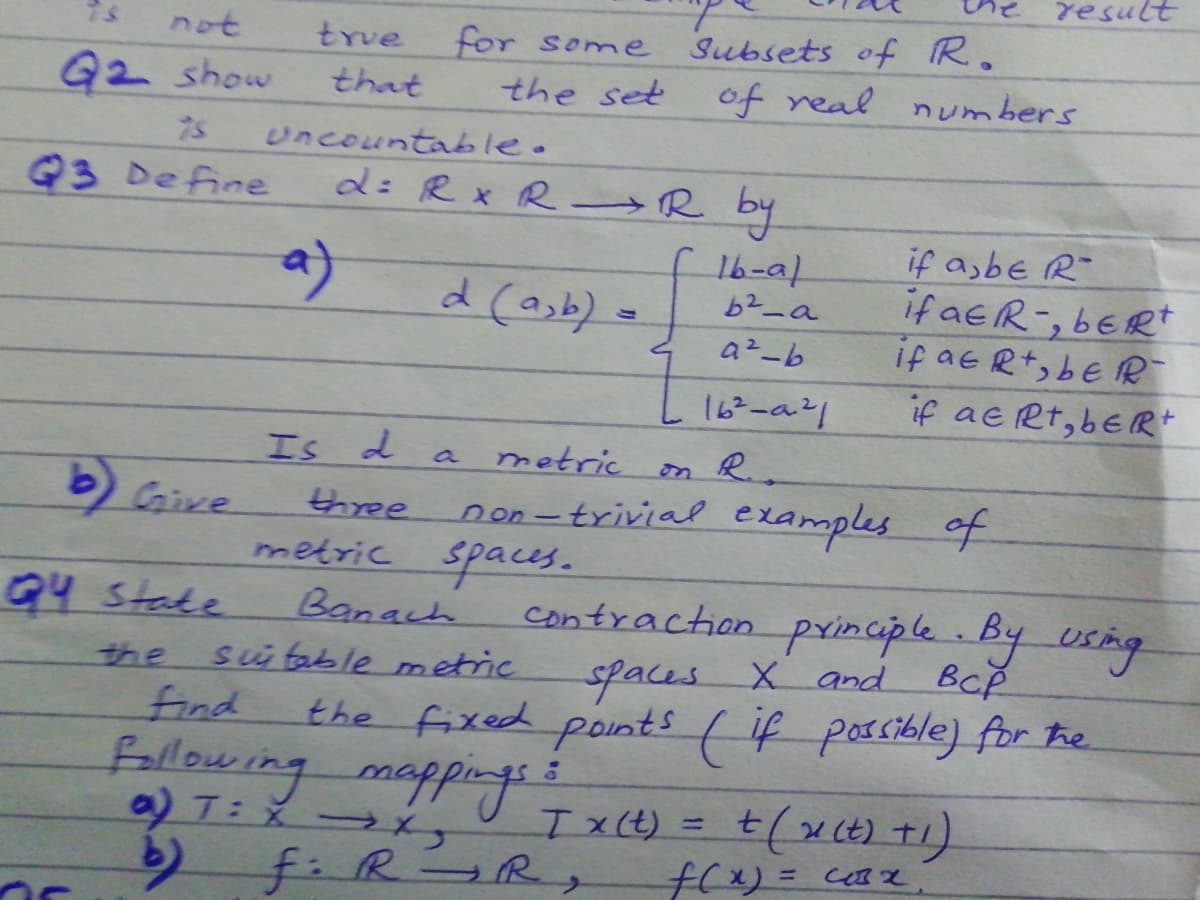 is not true for some subsets of ℝ.
the result
Q2 show that the set of real numbers
is uncountable.
Q3 Define d: ℝ x ℝ → ℝ by
a) d(a,b) = { |b-a| if a,b∈ ℝ⁻
b²-a if a∈ℝ⁻, b∈ℝ⁺
a²-b if a∈ ℝ⁺, b∈ ℝ⁻
|b²-a²| if a∈ ℝ⁺, b∈ℝ⁺
Is d a metric on ℝ.
b) Give three non-trivial examples of
metric spaces.
Q4 State Banach contraction principle. By using
the suitable metric spaces X and BCP
find the fixed points (if possible) for the
following mappings:
a) T: X → X, Tx(t) = t(x(t) +1)
b) f: ℝ → ℝ, f(x) = cos x.